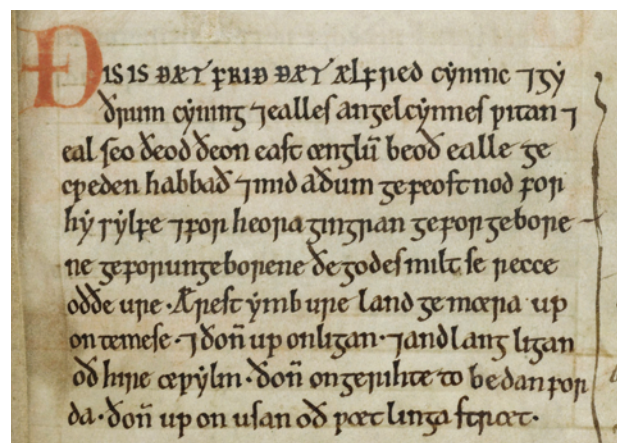 ÐIS IS ÐÆT FRIÐ ÐÆT ÆLFRED cẏninc ⁊ gẏ
ðrum cẏning ⁊ ealles angelcẏnnes ƿitan ⁊
eal seo ðeod ðe on east ænglū beoð ealle ge
cƿeden habbað ⁊ mid aðum gefeostnod for
hẏ sẏlfe ⁊ for heora gingran ge for gebore
ne ge for ungeborene ðe godes miltse recce
oððe ure · Ærest ẏmb ure land gemæra up
on temese · ⁊ ðoñ up on ligan · ⁊ andlang ligan
oð hire æƿẏlm · ðoñ on gerihte to bedan for
da · ðoñ up on usan oð ƿætlinga stræt ·